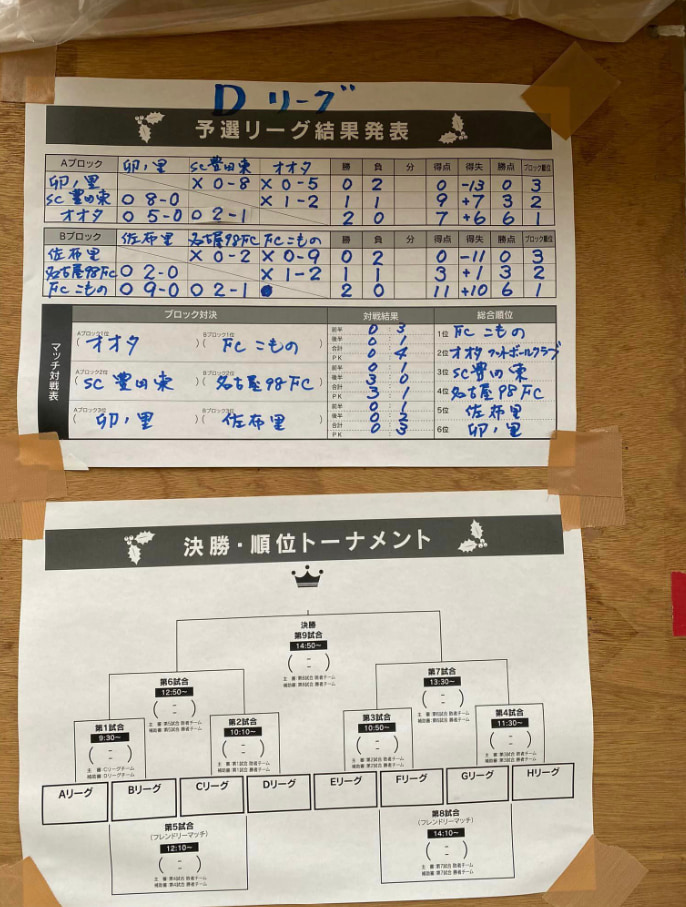 D リーグ
予選リーグ結果発表
Aブロック 卯ノ里 SC豊田東 オオタ 勝 負 分 得点 得失 勝点 ブロック順位
卯ノ里 × 0-8 × 0-5 0 2 0 -13 0 3
SC豊田東 〇 8-0 × 1-2 1 1 9 +7 3 2
オオタ 〇 5-0 〇 2-1 2 0 7 +6 6 1
Bブロック 佐布里 名古屋98FC FCこもの 勝 負 分 得点 得失 勝点 ブロック順位
佐布里 × 0-2 × 0-9 0 2 0 -11 0 3
名古屋98FC 〇 2-0 × 1-2 1 1 3 +1 3 2
FCこもの 〇 9-0 〇 2-1 2 0 11 +10 6 1
マッチ対戦表
ブロック対決 対戦結果 総合順位
Aブロック1位 (オオタ) Bブロック1位 (FCこもの)
前半 0 : 3
後半 0 : 1
合計 0 : 4
PK
Aブロック2位 (SC豊田東) Bブロック2位 (名古屋98FC)
前半 0 : 1
後半 3 : 0
合計 3 : 1
PK
Aブロック3位 (卯ノ里) Bブロック3位 (佐布里)
前半 0 : 1
後半 0 : 2
合計 0 : 3
PK
1位 FCこもの
2位 オオタフットボールクラブ
3位 SC豊田東
4位 名古屋98FC
5位 佐布里
6位 卯ノ里
決勝・順位トーナメント
決勝
第9試合
14:50~
主 審 第8試合 敗者チーム
補助審 第8試合 勝者チーム
第6試合
12:50~
主 審 第5試合 敗者チーム
補助審 第5試合 勝者チーム
第7試合
13:30~
主 審 第6試合 敗者チーム
補助審 第6試合 勝者チーム
第1試合
9:30~
主 審 Cリーグチーム
補助審 Dリーグチーム
第2試合
10:10~
主 審 第1試合 敗者チーム
補助審 第1試合 勝者チーム
第3試合
10:50~
主 審 第2試合 敗者チーム
補助審 第2試合 勝者チーム
第4試合
11:30~
主 審 第3試合 敗者チーム
補助審 第3試合 勝者チーム
Aリーグ Bリーグ Cリーグ Dリーグ Eリーグ Fリーグ Gリーグ Hリーグ
第5試合
(フレンドリーマッチ)
12:10~
主 審 第4試合 敗者チーム
補助審 第4試合 勝者チーム
第8試合
(フレンドリーマッチ)
14:10~
主 審 第7試合 敗者チーム
補助審 第7試合 勝者チーム